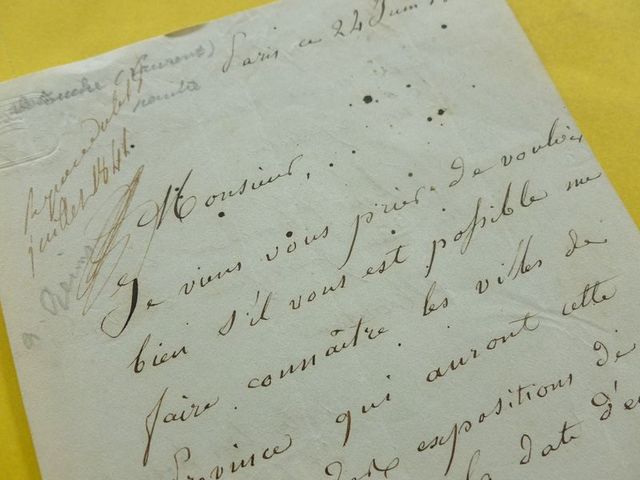 Paris ce 24 Juin
(Laurent)
peintre
juillet 1841.
Monsieur,
Je viens vous prier de vouloir
bien s'il vous est possible me
faire connaître les villes de
Province qui auront cette
expositions de
la date d'e